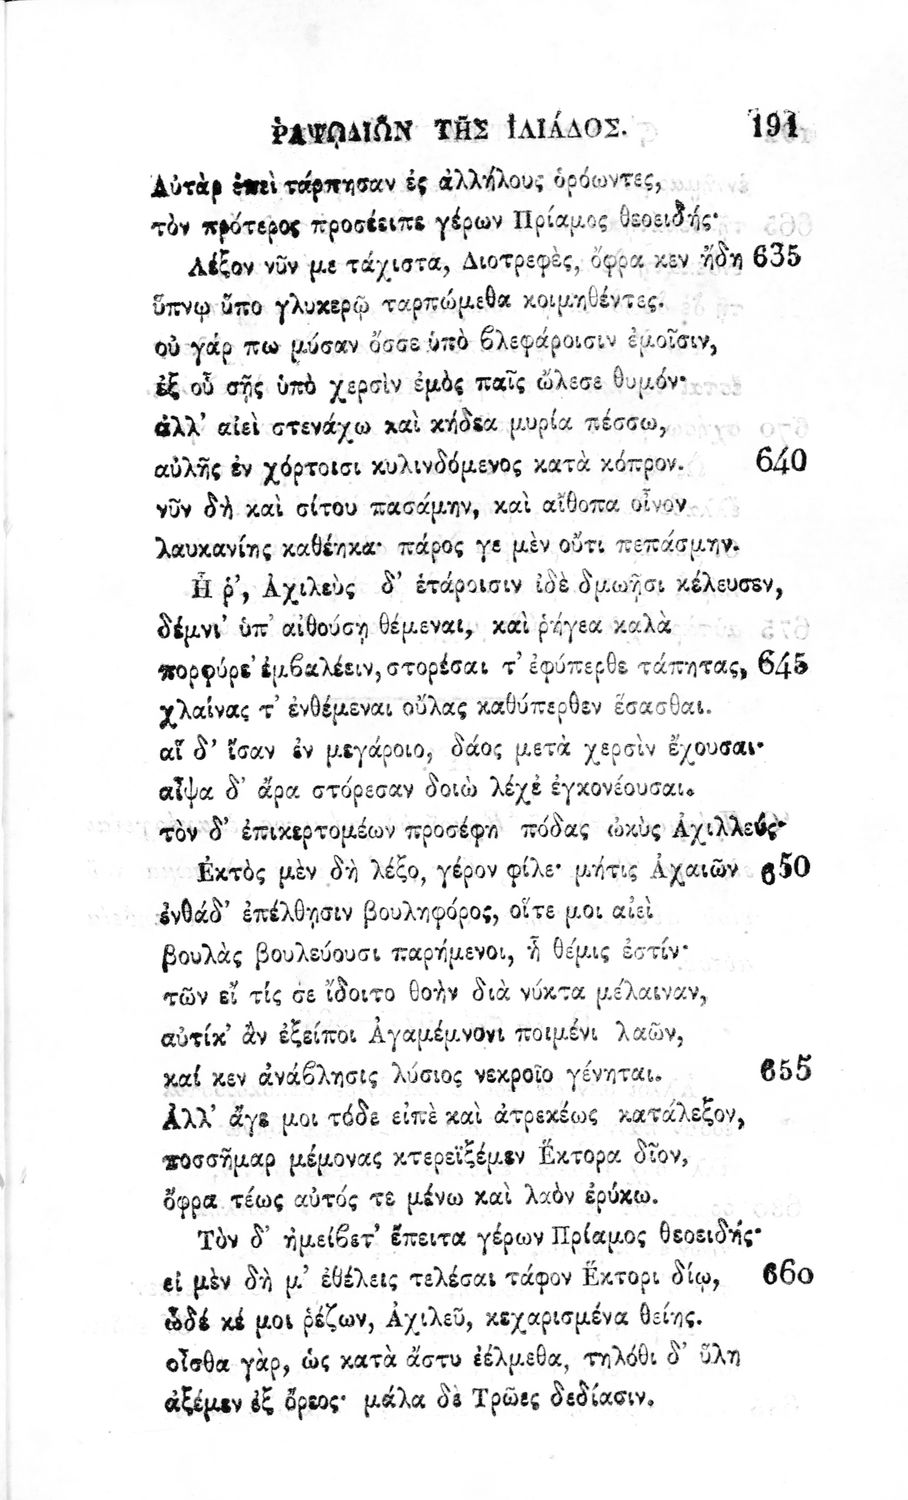 ῬΑΨΩΔΙΩ͂Ν ΤΗ͂Σ ἸΛΙΆΔΟΣ. 191
Αὐτὰρ ἐπεὶ τάρπησαν ἐς ἀλλήλους ὁρόωντες,
τὸν πρότερος προσέειπε γέρων Πρίαμος θεοειδής·
Λέξον νῦν με τάχιστα, Διοτρεφὲς, ὄφρα κεν ἤδη 635
ὕπνῳ ὕπο γλυκερῷ ταρπώμεθα κοιμηθέντες.
οὐ γάρ πω μύσαν ὄσσε ὑπὸ βλεφάροισιν ἐμοῖσιν,
ἐξ οὗ σῇς ὑπὸ χερσὶν ἐμὸς παῖς ὤλεσε θυμόν·
ἀλλ' αἰεὶ στενάχω καὶ κήδεα μυρία πέσσω,
αὐλῆς ἐν χόρτοισι κυλινδόμενος κατὰ κόπρον. 640
νῦν δὴ καὶ σίτου πασάμην, καὶ αἴθοπα οἶνον
λαυκανίης καθέηκα· πάρος γε μὲν οὔτι πεπάσμην.
Ἦ ῥ', Ἀχιλεὺς δ' ἑτάροισιν ἰδὲ δμωῇσι κέλευσεν,
δέμνι' ὑπ' αἰθούσῃ θέμεναι, καὶ ῥήγεα καλὰ
πορφύρε' ἐμβαλέειν, στορέσαι τ' ἐφύπερθε τάπητας, 645
χλαίνας τ' ἐνθέμεναι οὔλας καθύπερθεν ἕσασθαι.
αἳ δ' ἴσαν ἐν μεγάροιο, δάος μετὰ χερσὶν ἔχουσαι·
αἶψα δ' ἄρα στόρεσαν δοιὼ λέχἐ ἐγκονέουσαι.
τὸν δ' ἐπικερτομέων προσέφη πόδας ὠκὺς Ἀχιλλεύς·
Ἐκτὸς μὲν δὴ λέξο, γέρον φίλε· μήτις Ἀχαιῶν 650
ἐνθάδ' ἐπέλθησιν βουληφόρος, οἵτε μοι αἰεὶ
βουλὰς βουλεύουσι παρήμενοι, ἣ θέμις ἐστίν·
τῶν εἴ τίς σε ἴδοιτο θοὴν διὰ νύκτα μέλαιναν,
αὐτίκ' ἂν ἐξείποι Ἀγαμέμνονι ποιμένι λαῶν,
καί κεν ἀνάβλησις λύσιος νεκροῖο γένηται. 655
Ἀλλ' ἄγε μοι τόδε εἰπὲ καὶ ἀτρεκέως κατάλεξον,
ποσσῆμαρ μέμονας κτερεϊξέμεν Ἕκτορα δῖον,
ὄφρα τέως αὐτός τε μένω καὶ λαὸν ἐρύκω.
Τὸν δ' ἠμείβετ' ἔπειτα γέρων Πρίαμος θεοειδής·
εἰ μὲν δὴ μ' ἐθέλεις τελέσαι τάφον Ἕκτορι δίῳ, 660
ὧδέ κέ μοι ῥέζων, Ἀχιλεῦ, κεχαρισμένα θείης.
οἶσθα γὰρ, ὡς κατὰ ἄστυ ἐέλμεθα, τηλόθι δ' ὕλη
ἀξέμεν ἐξ ὄρεος· μάλα δὲ Τρῶες δεδίασιν.